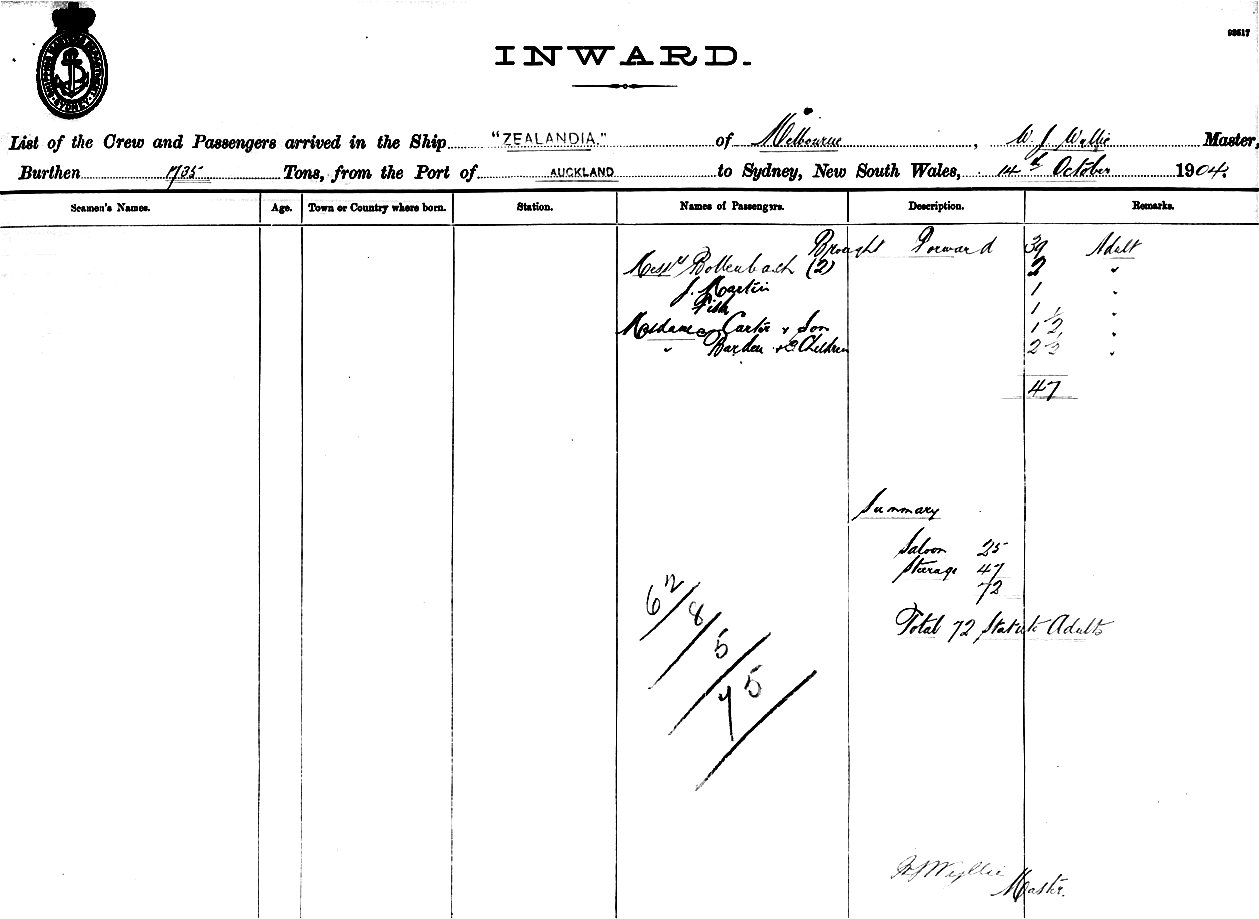 SHIPPING MASTER'S DEPARTMENT SYDNEY
93617
INWARD.
List of the Crew and Passengers arrived in the Ship "ZEALANDIA." of Melbourne, W. J. Wyllie Master,
Burthen 1735 Tons, from the Port of AUCKLAND to Sydney, New South Wales, 14th October 1904.
Seamen's Names. Age. Town or Country where born. Station. Names of Passengers. Description. Remarks.
Brought Forward 39 Adult
Messrs Bollenbach (2) 2 "
J. Martin 1 "
Fish 1 "
Mesdames Carter & Son 1 1/2 "
" Barden & 2 Children 2 1/2 "
47
Summary
Saloon 25
Steerage 47
72
Total 72 Statute Adults
62/
8/
5/
75/
W J Wyllie
Master.